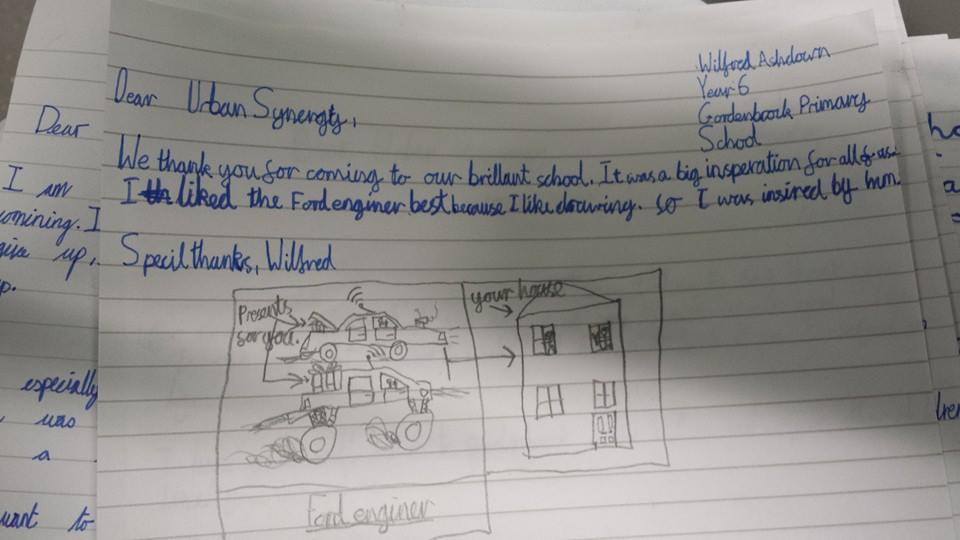 Wilfred Ashdown
Year 6
Gordenbrock Primary
School
Dear Urban Synergty,
We thank you for coming to our brillant school. It was a big insperation for all of us.
I liked the Ford enginer best because I like drawring. so I was insired by him.
Specil thanks, Wilfred
Presents
for you.
your house
Ford enginer
Dear
I am
comining. I
give up,
p.
especially
was
a
want to
ho
a
her